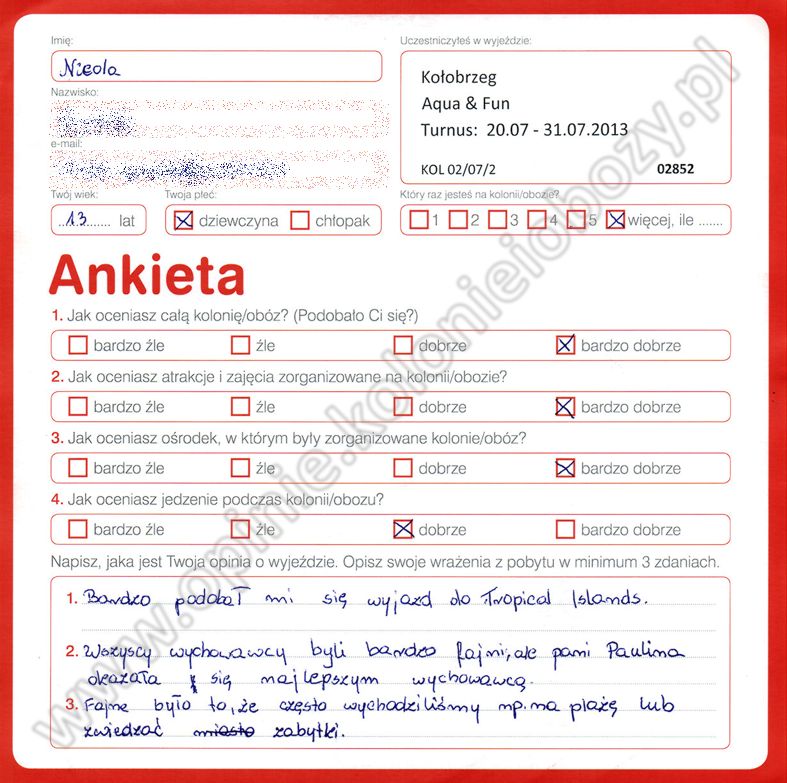 Imię:
Nicola
Nazwisko:
e-mail:
Twój wiek:
13 lat
Twoja płeć:
dziewczyna chłopak
Uczestniczyłeś w wyjeździe:
Kołobrzeg
Aqua & Fun
Turnus: 20.07 - 31.07.2013
KOL 02/07/2 02852
Który raz jesteś na kolonii/obozie?
1 2 3 4 5 więcej, ile .......
Ankieta
1. Jak oceniasz całą kolonię/obóz? (Podobało Ci się?)
bardzo źle źle dobrze bardzo dobrze
2. Jak oceniasz atrakcje i zajęcia zorganizowane na kolonii/obozie?
bardzo źle źle dobrze bardzo dobrze
3. Jak oceniasz ośrodek, w którym były zorganizowane kolonie/obóz?
bardzo źle źle dobrze bardzo dobrze
4. Jak oceniasz jedzenie podczas kolonii/obozu?
bardzo źle źle dobrze bardzo dobrze
Napisz, jaka jest Twoja opinia o wyjeździe. Opisz swoje wrażenia z pobytu w minimum 3 zdaniach.
1. Bardzo podobał mi się wyjazd do Tropical Islands.
2. Wszyscy wychowawcy byli bardzo fajni, ale pani Paulina
okazała się najlepszym wychowawcą.
3. Fajne było to, że często wychodziliśmy np. na plażę lub
zwiedzać miasto zabytki.
www.opinie.kolonieiobozy.pl